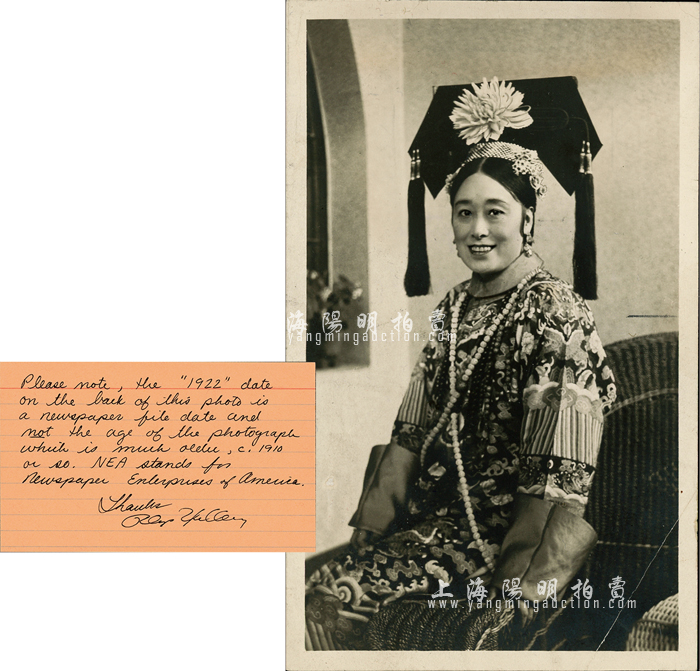 Please note, the "1922" date
on the back of this photo is
a newspaper file date and
not the age of the photograph
which is much older, c. 1910
or so. NEA stands for
Newspaper Enterprises of America.
Thanks
上海陽明拍賣
www.yangmingauction.com
上海陽明拍賣
www.yangmingauction.com